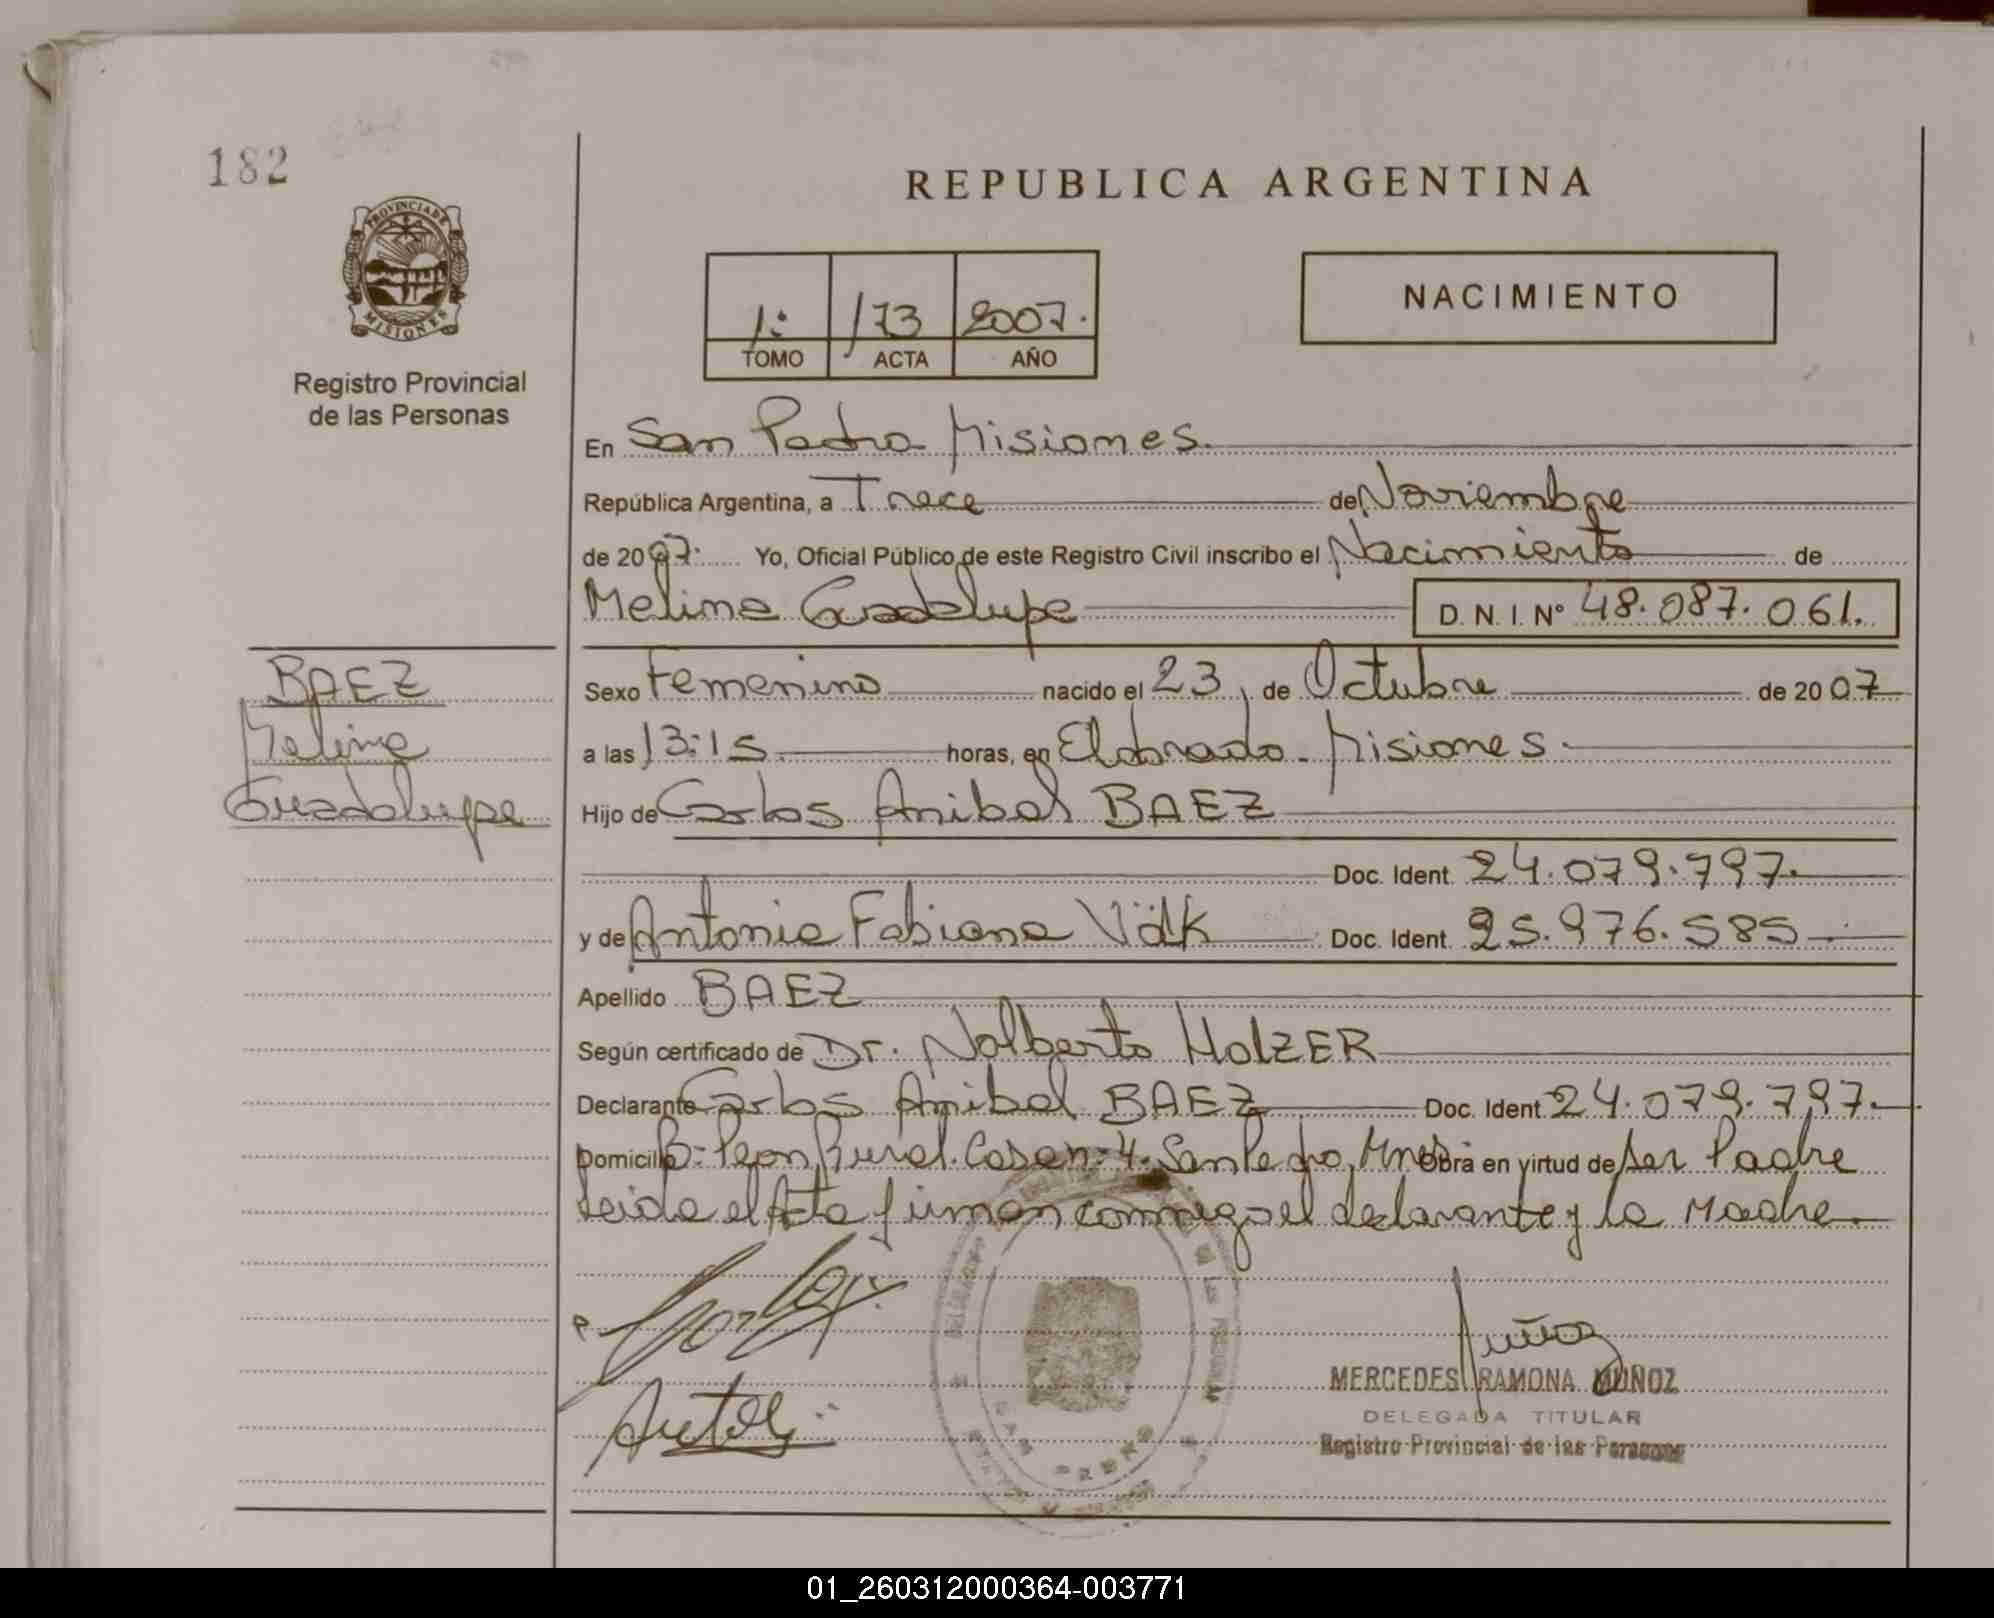 182
PROVINCIA DE
MISIONES
Registro Provincial
de las Personas
REPUBLICA ARGENTINA
1: 173 2007.
TOMO ACTA AÑO
NACIMIENTO
En San Pedro Misiones.
República Argentina, a Trece de Noviembre
de 2007. Yo, Oficial Público de este Registro Civil inscribo el Nacimiento de
Melina Guadalupe D. N. I. Nº 48.087.061.
BAEZ
Melina
Guadalupe
Sexo Femenino nacido el 23, de Octubre de 2007
a las 13:15 horas, en Eldorado - Misiones.
Hijo de Carlos Anibal BAEZ
Doc. Ident. 24.079.797.
y de Antonia Fabiana Doc. Ident. 25.976.585
Apellido BAEZ
Según certificado de Dr. Nolberto HOLZER
Declarante Carlos Anibal BAEZ Doc. Ident. 24.079.797.
Domicilio B: Peon Rural. Casa n: 4. San Pedro, Mnes Obra en virtud de ser Padre
Leida el Acta firman conmigo el declarante y la Madre.
Muñoz
MERCEDES RAMONA MUÑOZ
DELEGADA TITULAR
Registro Provincial de las Personas
SAN PEDRO
01_260312000364-003771